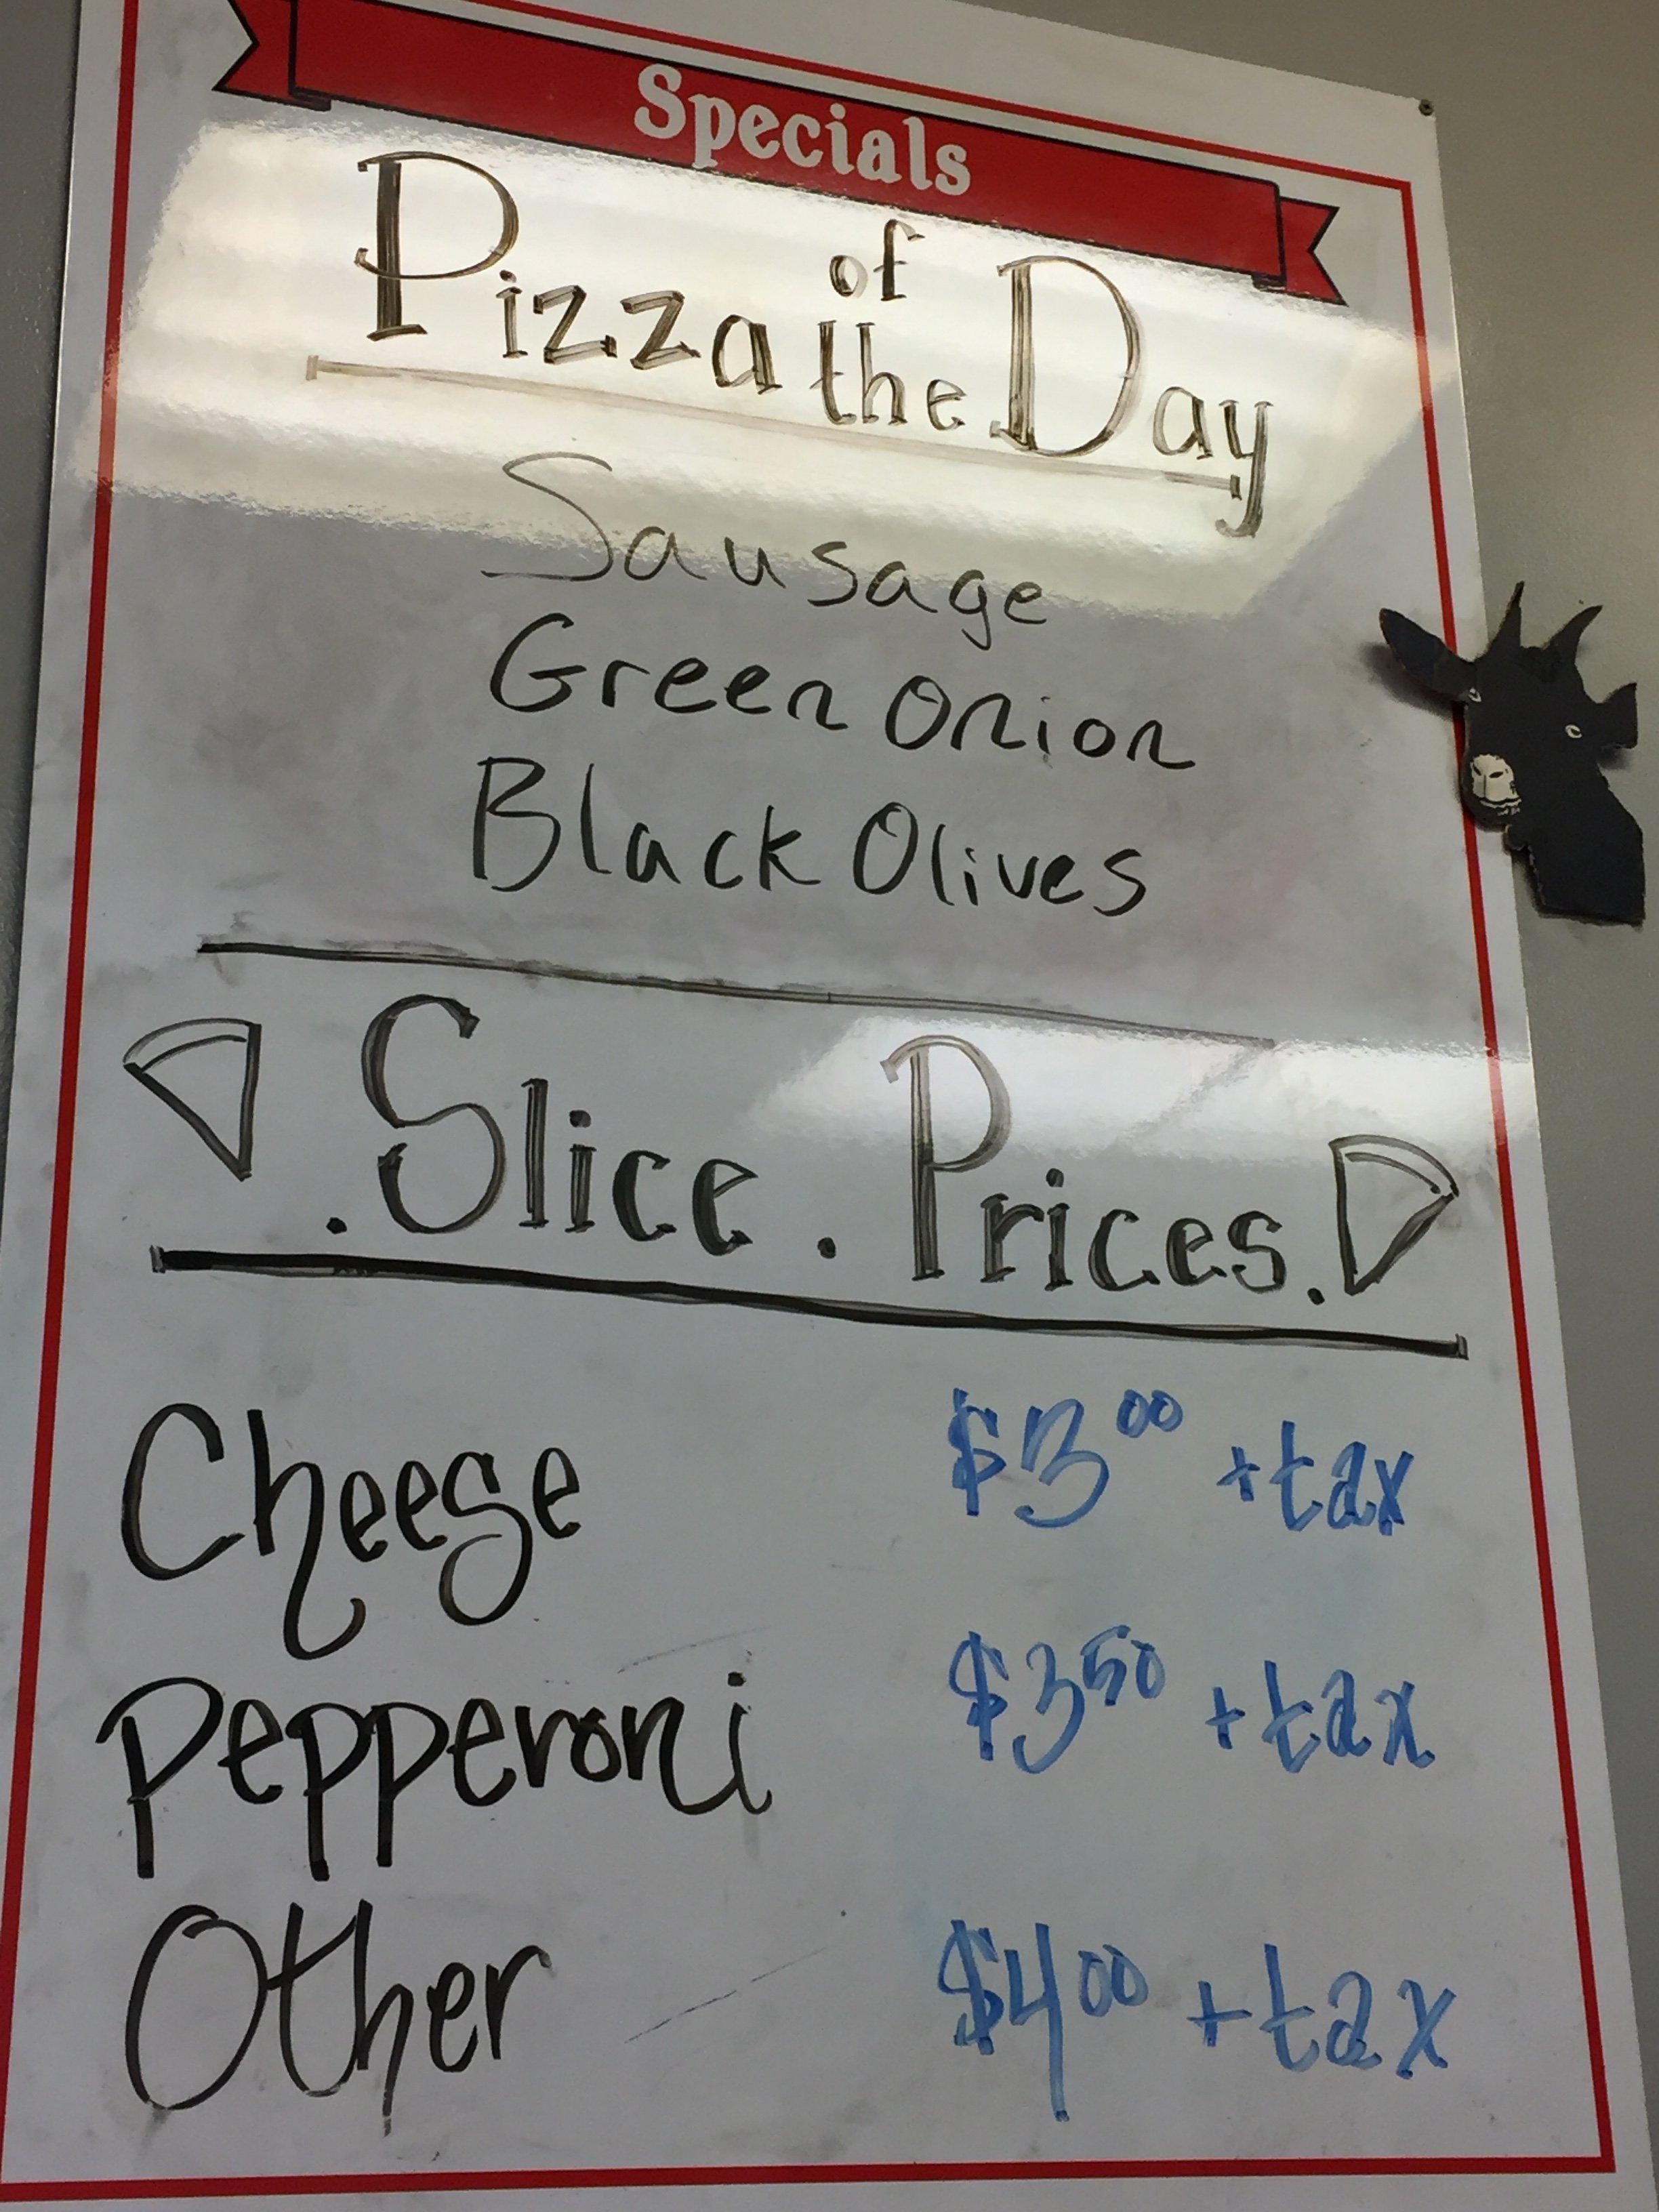 Specials
Pizza of the Day
Sausage
Green Onion
Black Olives
. Slice . Prices .
Cheese $3 00 + tax
Pepperoni $3 50 + tax
Other $4 00 + tax